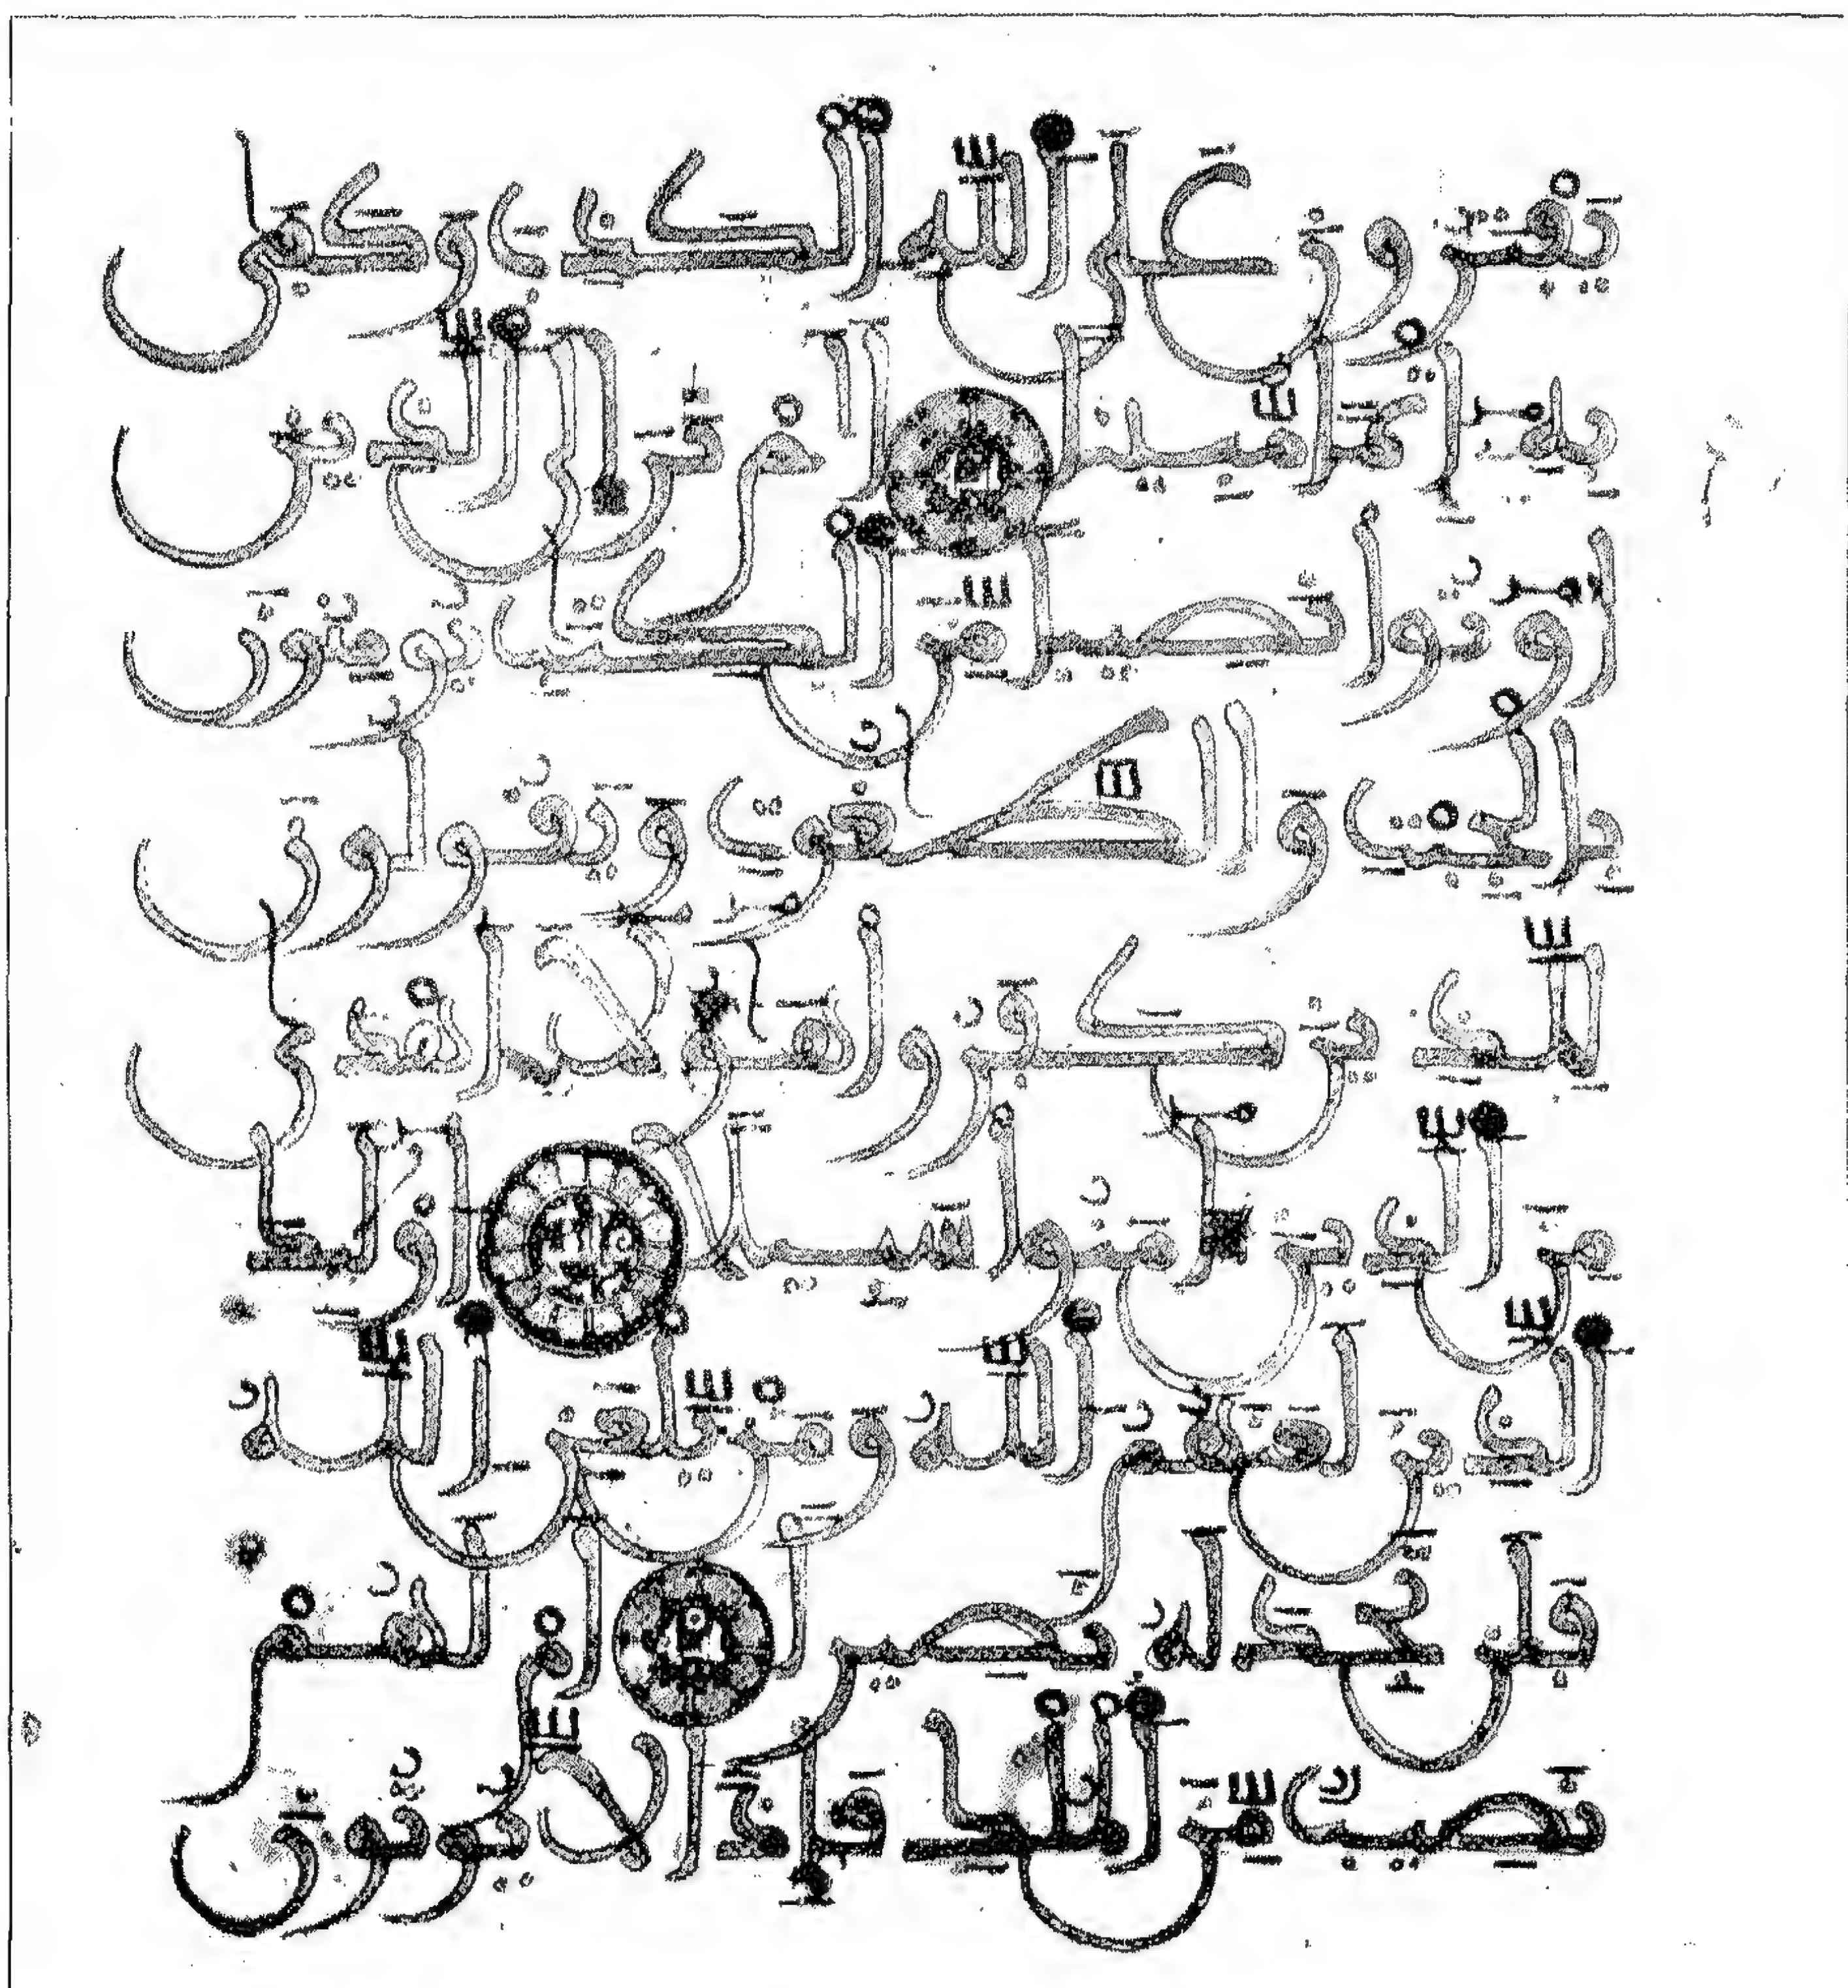 يَفْتَرُونَ عَلَى ٱللَّهِ ٱلْكَذِبَ وَكَفَىٰ
بِهِۦٓ إِثْمًا مُّبِينًا أَلَمْ تَرَ إِلَى ٱلَّذِينَ
أُوتُوا۟ نَصِيبًا مِّنَ ٱلْكِتَٰبِ يُؤْمِنُونَ
بِٱلْجِبْتِ وَٱلطَّٰغُوتِ وَيَقُولُونَ
لِلَّذِينَ كَفَرُوا۟ هَٰٓؤُلَآءِ أَهْدَىٰ
مِنَ ٱلَّذِينَ ءَامَنُوا۟ سَبِيلًا أُو۟لَٰٓئِكَ
ٱلَّذِينَ لَعَنَهُمُ ٱللَّهُ وَمَن يَلْعَنِ ٱللَّهُ
فَلَن تَجِدَ لَهُۥ نَصِيرًا أَمْ لَهُمْ
نَصِيبٌ مِّنَ ٱلْمُلْكِ فَإِذًا لَّا يُؤْتُونَ